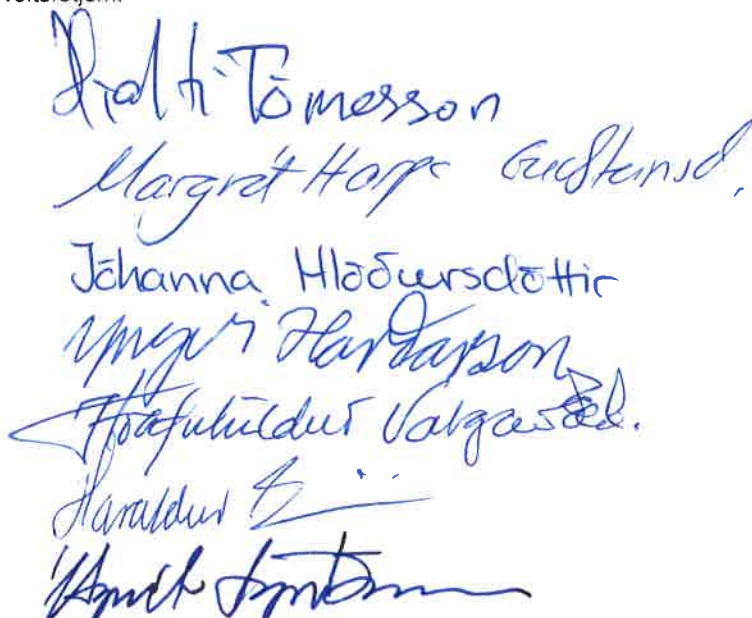 Hjalti Tómasson
Margrét Harpa Guðsteinsd.
Jóhanna Hlöðversdóttir
Yngvi Harðarson
Hrafnhildur Valgarðsd.
Haraldur